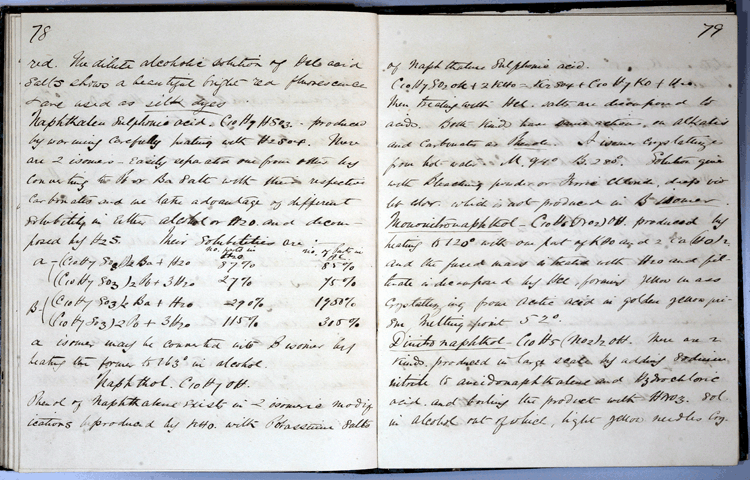 78
red. The dilute alcoholic solution of acid
salts shows a beautiful bright red fluorescence
& are used as silk dyes
Naphthalen Sulphonic acid. C10H7HSO3. produced
by warming carefully heating with H2SO4. There
are 2 isomers - Easily separates one from other by
converting to Pb or Ba Salt with their respective
Carbonates and we take advantage of different
solubility in ether alcohol or H2O. and decom-
posed by H2S. Their solubilities are:
no. parts in H2O no. of parts in
α - (C10H7SO3)2Ba + H2O 87% 85%
(C10H7SO3)2Pb + 3H2O 27% 75%
β - (C10H7SO3)2Ba + H2O 290% 1950%
(C10H7SO3)2Pb + 3H2O 115% 305%
α isomer may be converted into β isomer by
heating the former to 163° in alcohol.
Naphthol. C10H7OH.
Phenol of Naphthalene Exist in 2 isomeric modif-
ications produced by KHO. with Potassium Salts
79
of Naphthalene Sulphonic acid.
C10H7SO3K + 2KHO = K2SO4 + C10H7KO + H2O.
Then treating with HCl. salts are decomposed to
acids. Both kinds have same actions, on alkalies
and Carbonates as Phenol. α isomer Crystallizing
from hot water. M. 94° B. 280°. Solution gives
with Bleaching powder or Ferric Chloride, deep vio-
let color. which is not produced in β isomer
Mononitronaphthol - C10H6(NO2)OH. produced by
heating to 120° with one part of KHO and 2 Ca(HO)2.
and the fused mass is treated with H2O and fil-
trate is decomposed by HCl. forming yellow mass
Crystallizing from Acetic acid in golden yellow pri-
sm. Melting point 52°.
Dinitronaphthol - C10H5(NO2)2OH. There are 2
kinds, produced in large scale by adding Sodium
nitrite to amidonaphthalene and Hydrochloric
acid. and boiling the product with HNO3. Sol.
in alcohol out of which, light yellow needles Cry.